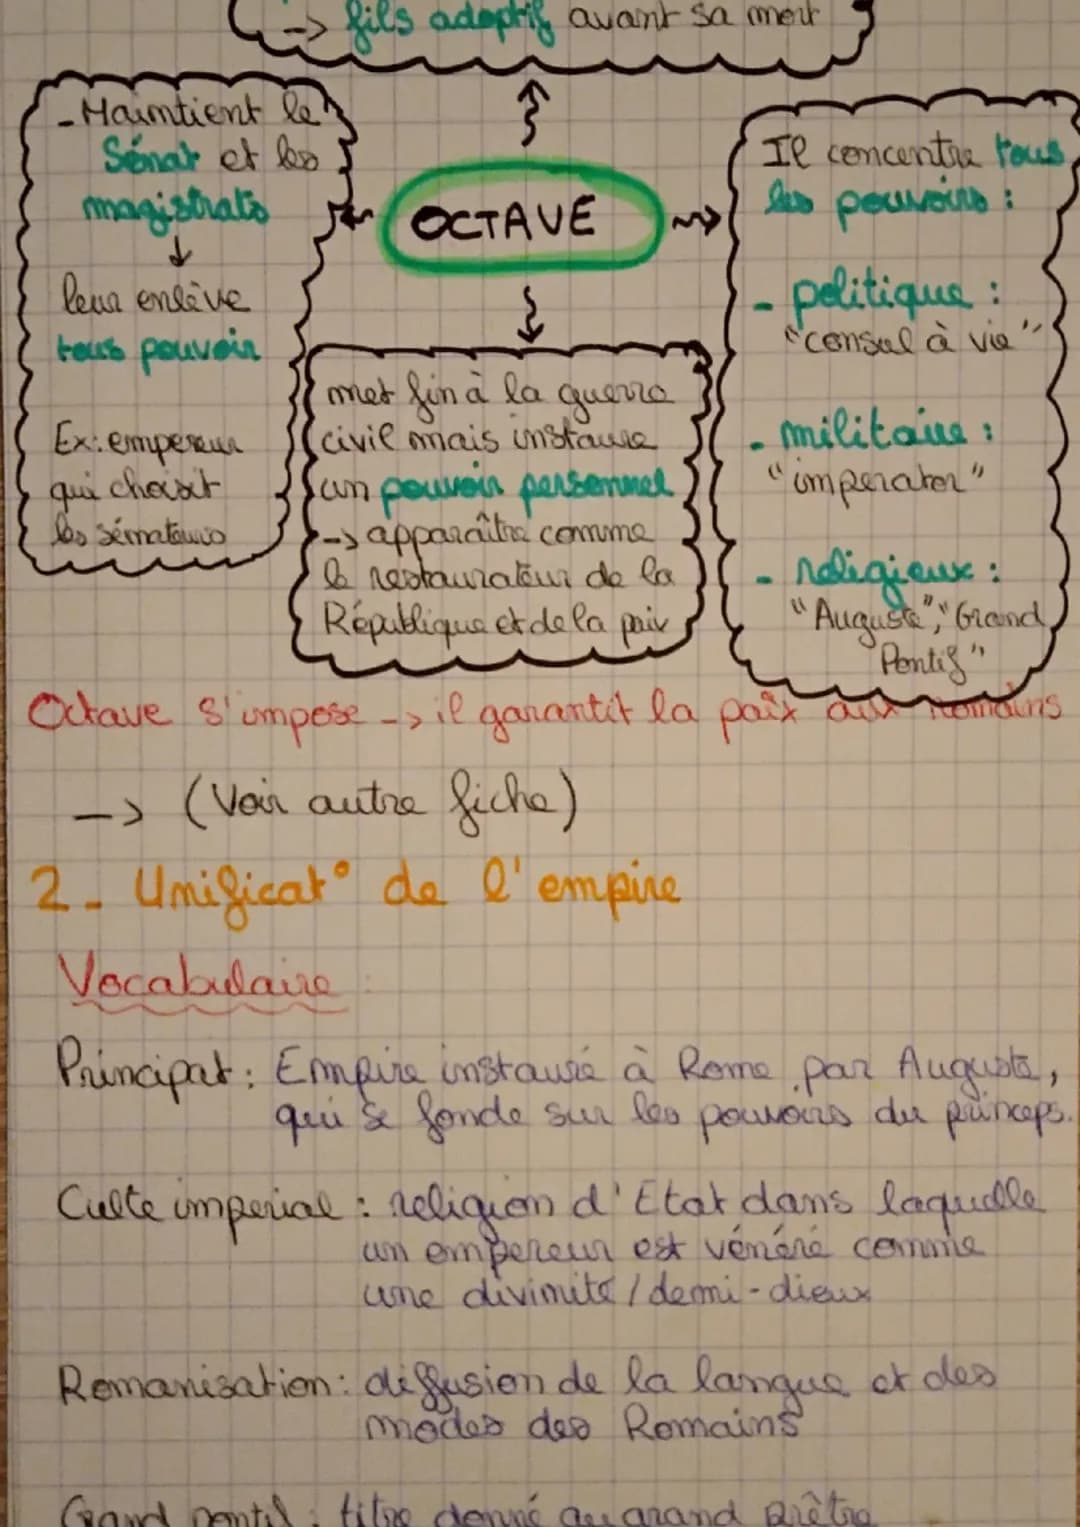 -> fils adoptif avant sa mort
- Maintient le
Sénat et les
magistrats
↓
leur enlève
tous pouvoir
Ex: empereur
qui choisit
les sénateurs
OCTAVE
met fin à la guerre
civil mais instaure
un pouvoir personnel
-> apparaître comme
le restaurateur de la
République et de la paix
Il concentre tous
les pouvoirs :
- politique :
"consul à vie"
- militaire :
"imperator"
- religieux :
"Auguste", "Grand
Pontif"
Octave s'impose -> il garantit la paix aux Romains
-> (Voir autre fiche)
2- Unificat° de l'empire
Vocabulaire :
Principat : Empire instauré à Rome par Auguste,
qui se fonde sur les pouvoirs du princeps.
Culte imperial : religion d'Etat dans laquelle
un empereur est vénéré comme
une divinité / demi-dieux
Romanisation : diffusion de la langue et des
modes des Romains
Grand pontif : titre donné au grand prêtre